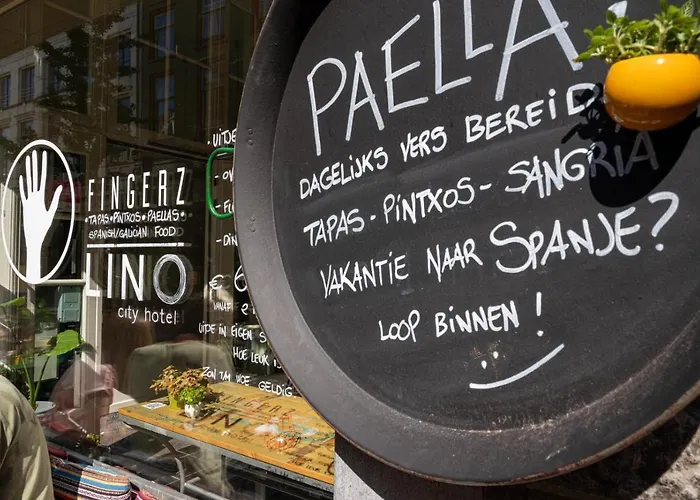 FINGERZ
• TAPAS • PINTXOS • PAELLAS •
SPANISH/GALICIAN FOOD
LINO
city hotel
UITDE IN EIGEN S
HOE LEUK IS
ZON T/M WOE GELDIG
PAELLA
DAGELIJKS VERS BEREID
TAPAS - PINTXOS - SANGRIA
VAKANTIE NAAR SPANJE?
LOOP BINNEN!